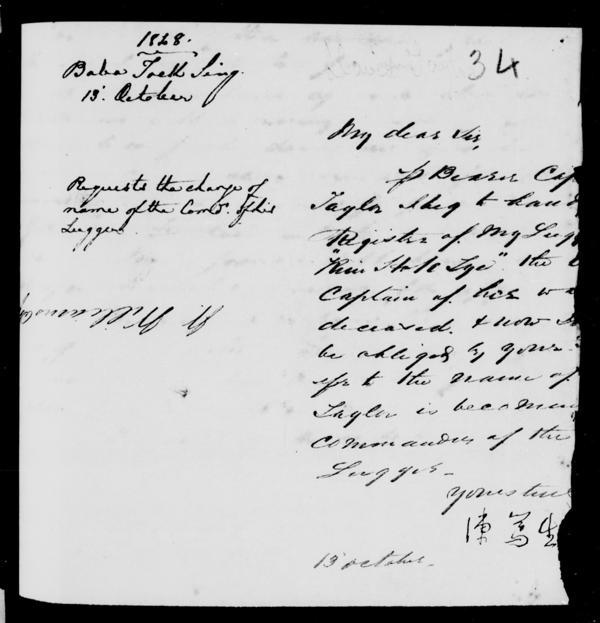 1828.
Baba Tock Sing
13 October
34
My dear Sir,
Requests the change of
name of the Comdr. of his
Lugger.
W. Williams
pr Bearer Cap
Taylor I beg to hand
Register of My Lugg
the
Captain of her wa
deceased, & now I
be obliged by your
the name of
Taylor is becom
commander of the
Lugger.
Yours tru
陳篤生
13 october.